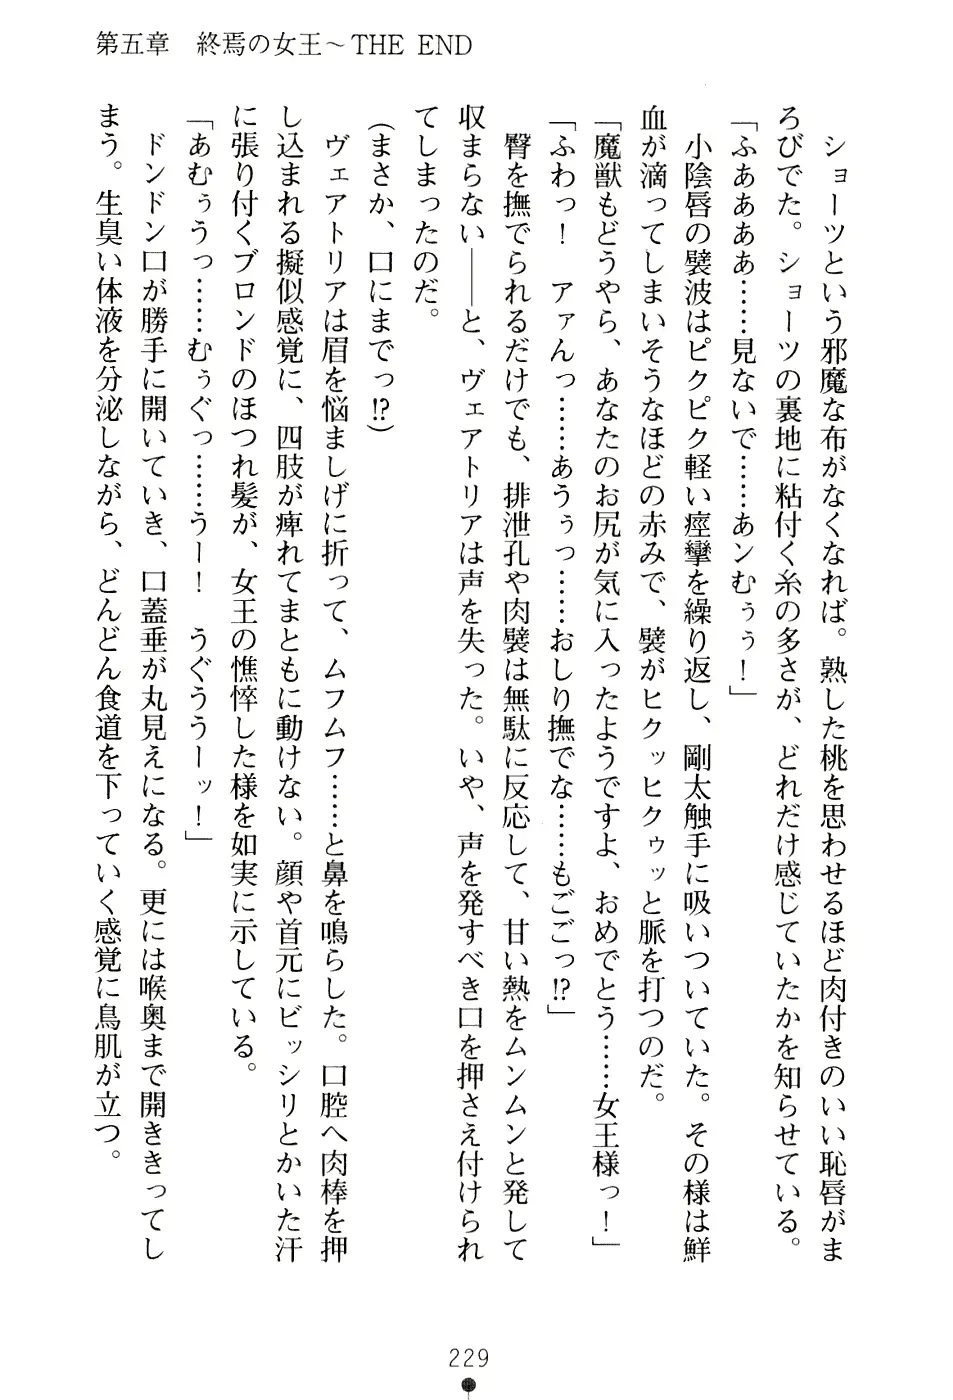 第五章　終焉の女王～THE END
　ショーツという邪魔な布がなくなれば。熟した桃を思わせるほど肉付きのいい恥唇がま
ろびでた。ショーツの裏地に粘付く糸の多さが、どれだけ感じていたかを知らせている。
「ふああああ……見ないで……あンむぅぅ！」
　小陰唇の襞波はピクピク軽い痙攣を繰り返し、剛太触手に吸いついていた。その様は鮮
血が滴ってしまいそうなほどの赤みで、襞がヒクッヒクゥッと脈を打つのだ。
「魔獣もどうやら、あなたのお尻が気に入ったようですよ、おめでとう……女王様っ！」
「ふわっ！　アァんっ……あうぅっ……おしり撫でな……もごごっ!?」
　臀を撫でられるだけでも、排泄孔や肉襞は無駄に反応して、甘い熱をムンムンと発して
収まらない――と、ヴェアトリアは声を失った。いや、声を発すべき口を押さえ付けられ
てしまったのだ。
（まさか、口にまでっ!?）
　ヴェアトリアは眉を悩ましげに折って、ムフムフ……と鼻を鳴らした。口腔へ肉棒を押
し込まれる擬似感覚に、四肢が痺れてまともに動けない。顔や首元にビッシリとかいた汗
に張り付くブロンドのほつれ髪が、女王の憔悴した様を如実に示している。
「あむぅうっ……むぅぐっ……うー！　うぐううーッ！」
　ドンドン口が勝手に開いていき、口蓋垂が丸見えになる。更には喉奥まで開ききってし
まう。生臭い体液を分泌しながら、どんどん食道を下っていく感覚に鳥肌が立つ。
229